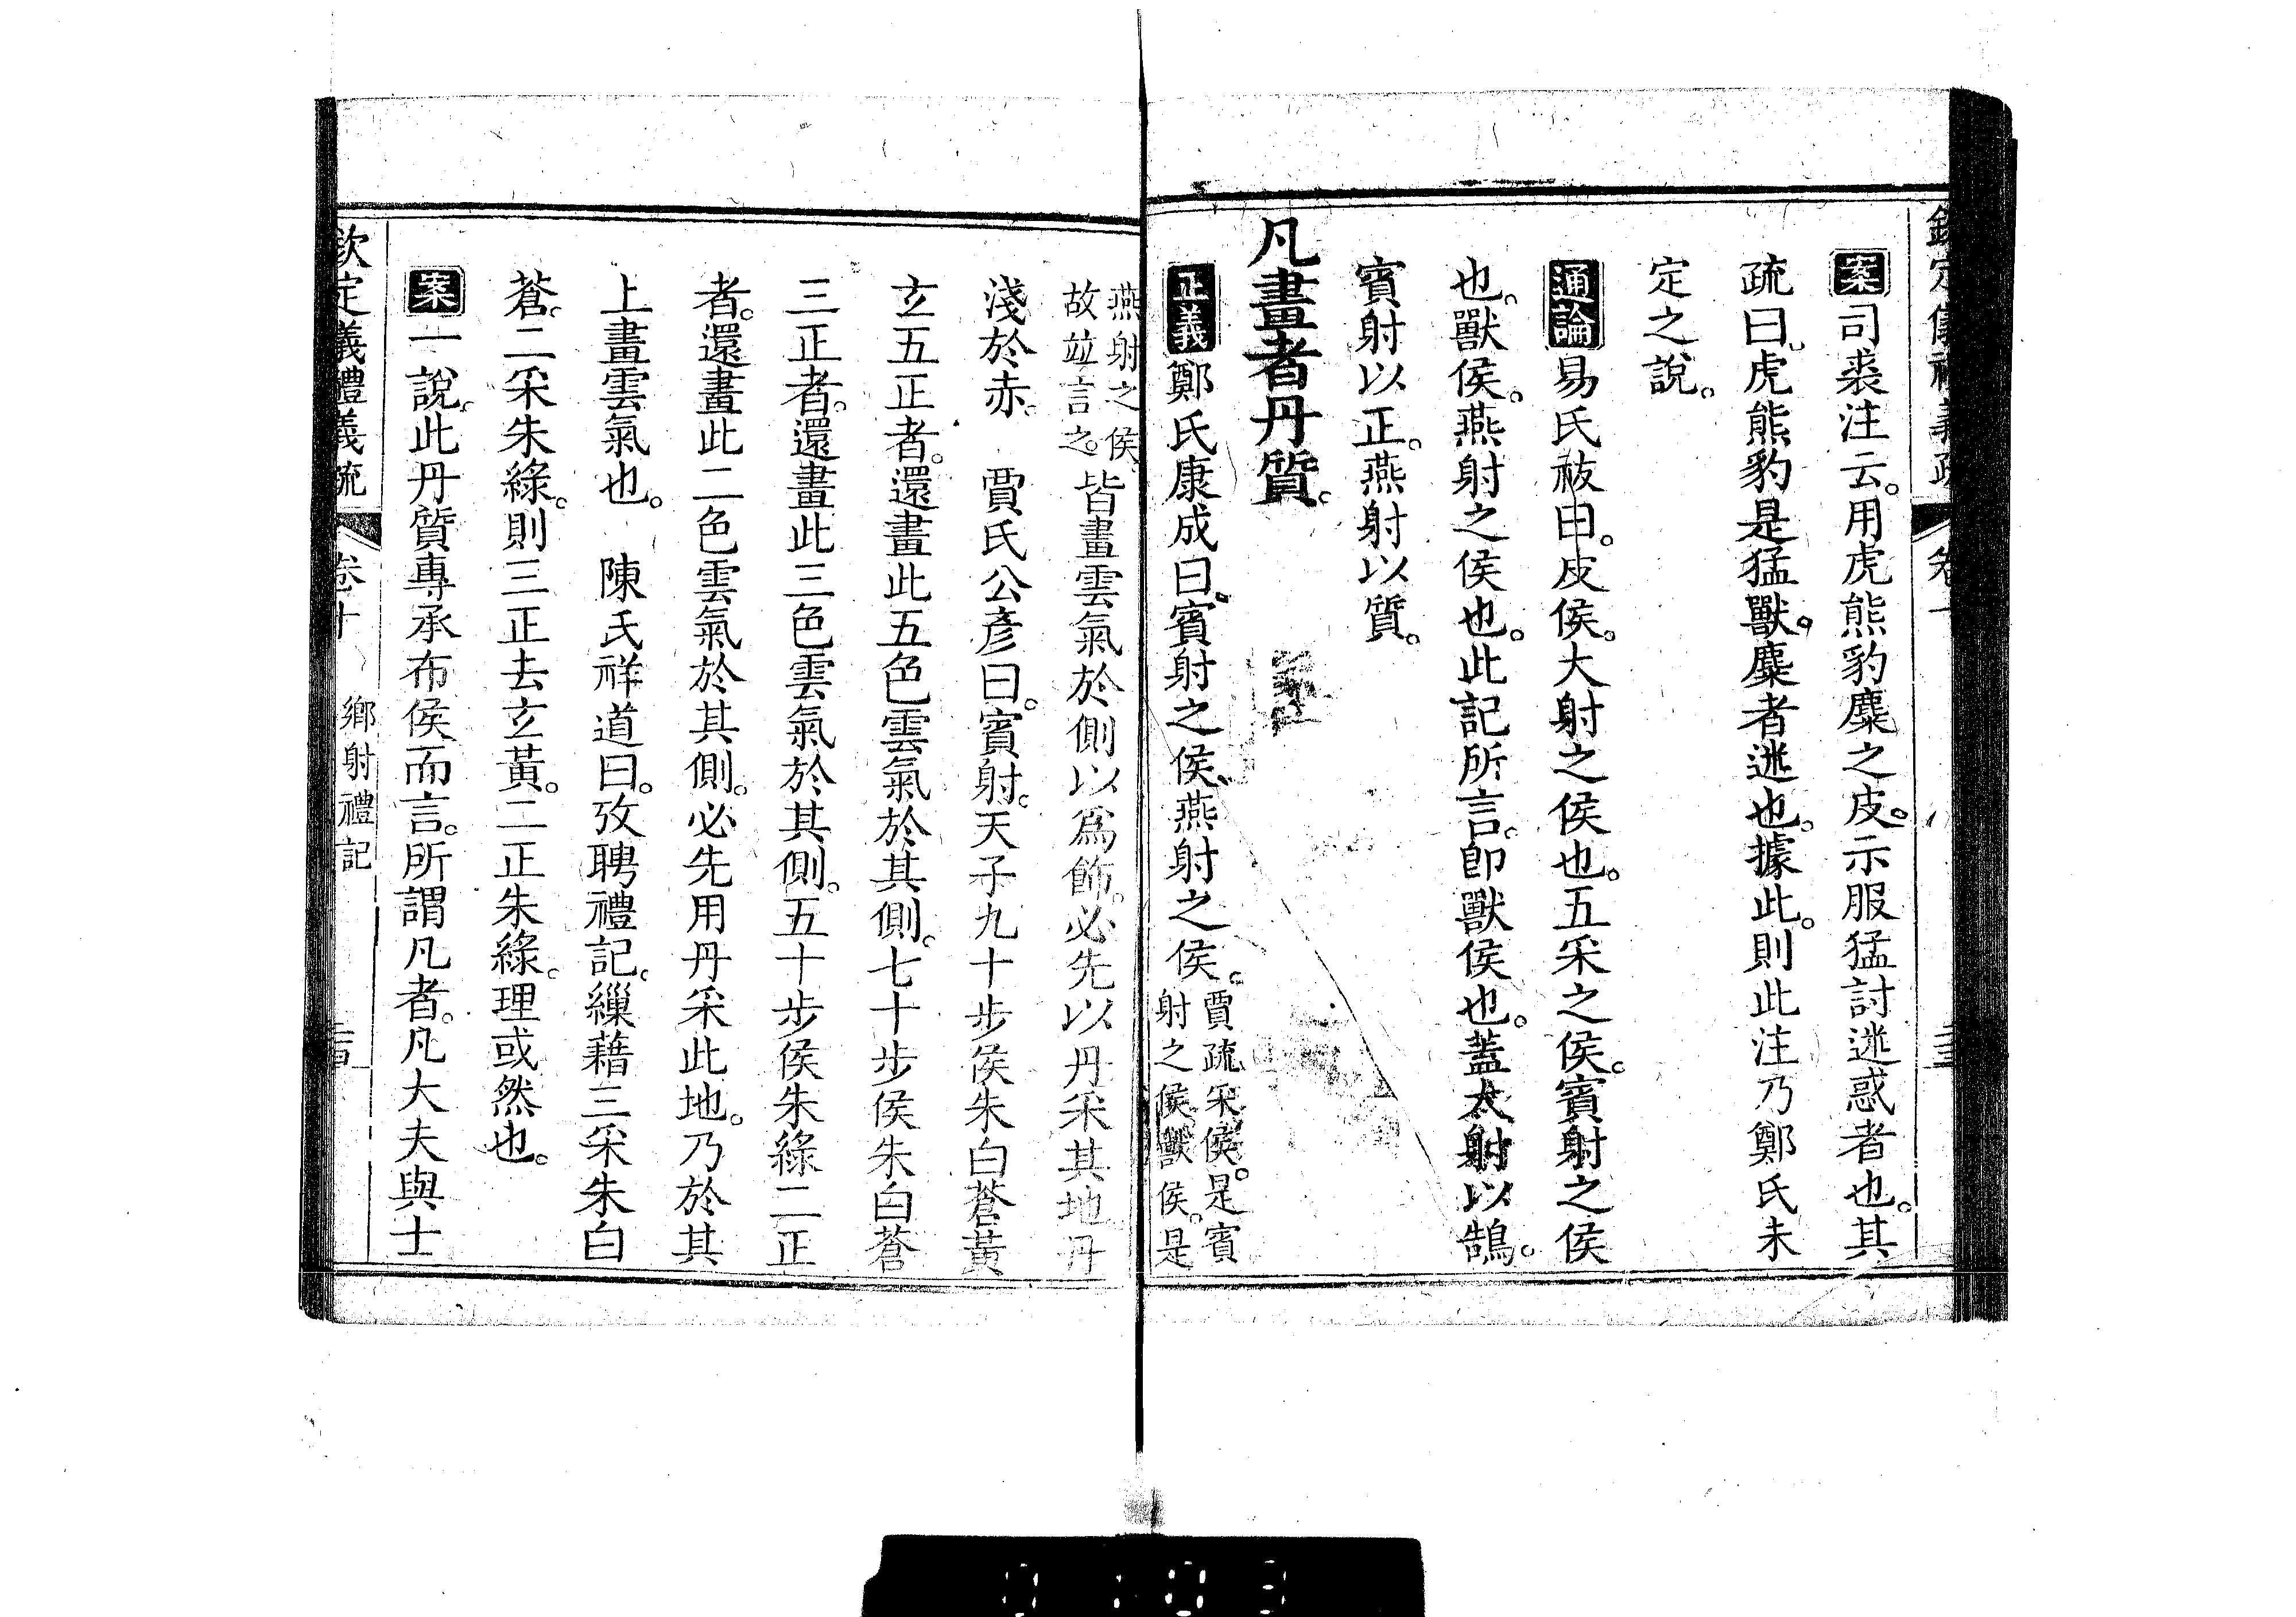 案司裘注云。用虎熊豹麋之皮。示服猛討迷惑者也。其
疏曰。虎熊豹是猛獸。麋者迷也。據此。則此注乃鄭氏未
定之說。
通論易氏祓曰。皮侯。大射之侯也。五采之侯。賓射之侯
也。獸侯。燕射之侯也。此記所言。卽獸侯也。蓋大射以鵠。
賓射以正。燕射以質。
凡畫者丹質。
正義鄭氏康成曰。賓射之侯、燕射之侯。賈疏采侯。是賓
射之侯。獸侯。是
燕射之侯。
故竝言之。皆畫雲氣於側以爲飾。必先以丹采其地。丹
淺於赤。 賈氏公彥曰。賓射。天子九十步侯朱白蒼黃
玄五正者。還畫此五色雲氣於其側。七十步侯朱白蒼
三正者。還畫此三色雲氣於其側。五十步侯朱綠二正
者。還畫此二色雲氣於其側。必先用丹采此地。乃於其
上畫雲氣也。 陳氏祥道曰。攷聘禮記。繅藉三采朱白
蒼。二采朱綠。則三正去玄黃。二正朱綠。理或然也。
案一說。此丹質專承布侯而言。所謂凡者。凡大夫與士
欽定義禮義疏 卷十 鄉射禮記